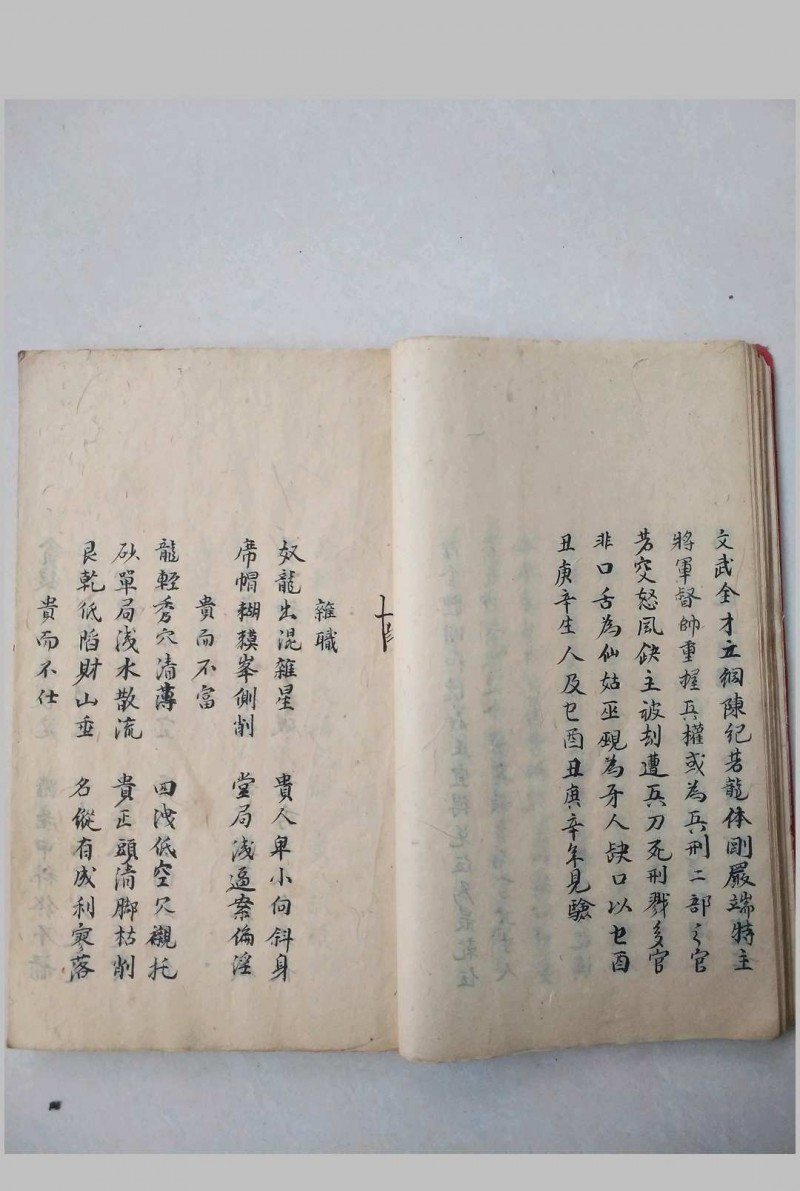 文武全才立綱陳紀若龍体剛嚴端特主
將軍督帥重握兵權或為兵刑二部之官
若突怒風缺主被刦遭兵刀死刑戮多官
非口舌為仙姑巫覡為牙人缺口以巳酉
丑庚辛生人及巳酉丑庚辛年見驗
雜職
奴龍出混雜星 貴人卑小向斜身
席帽糊糢峯側削 堂局浅逼案偏淫
貴而不富
龍輕秀穴清薄 四洩低空欠襯托
砂單局浅水散流 貴正頭清脚枯削
艮乾低陷財山垂 名縱有成利寥落
貴而不仕